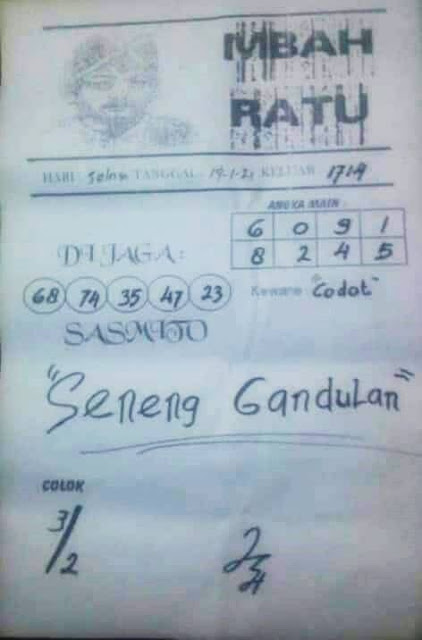 MBAH
RATU
HARI : Selasa TANGGAL : 19-1-21 KELUAR 1719
ANGKA MAIN :
6 0 9 1
8 2 4 5
DI JAGA :
68 74 35 47 23
Kewane "Codot"
SASMITO
"Seneng Gandulan"
COLOK
3/2
2
3/4